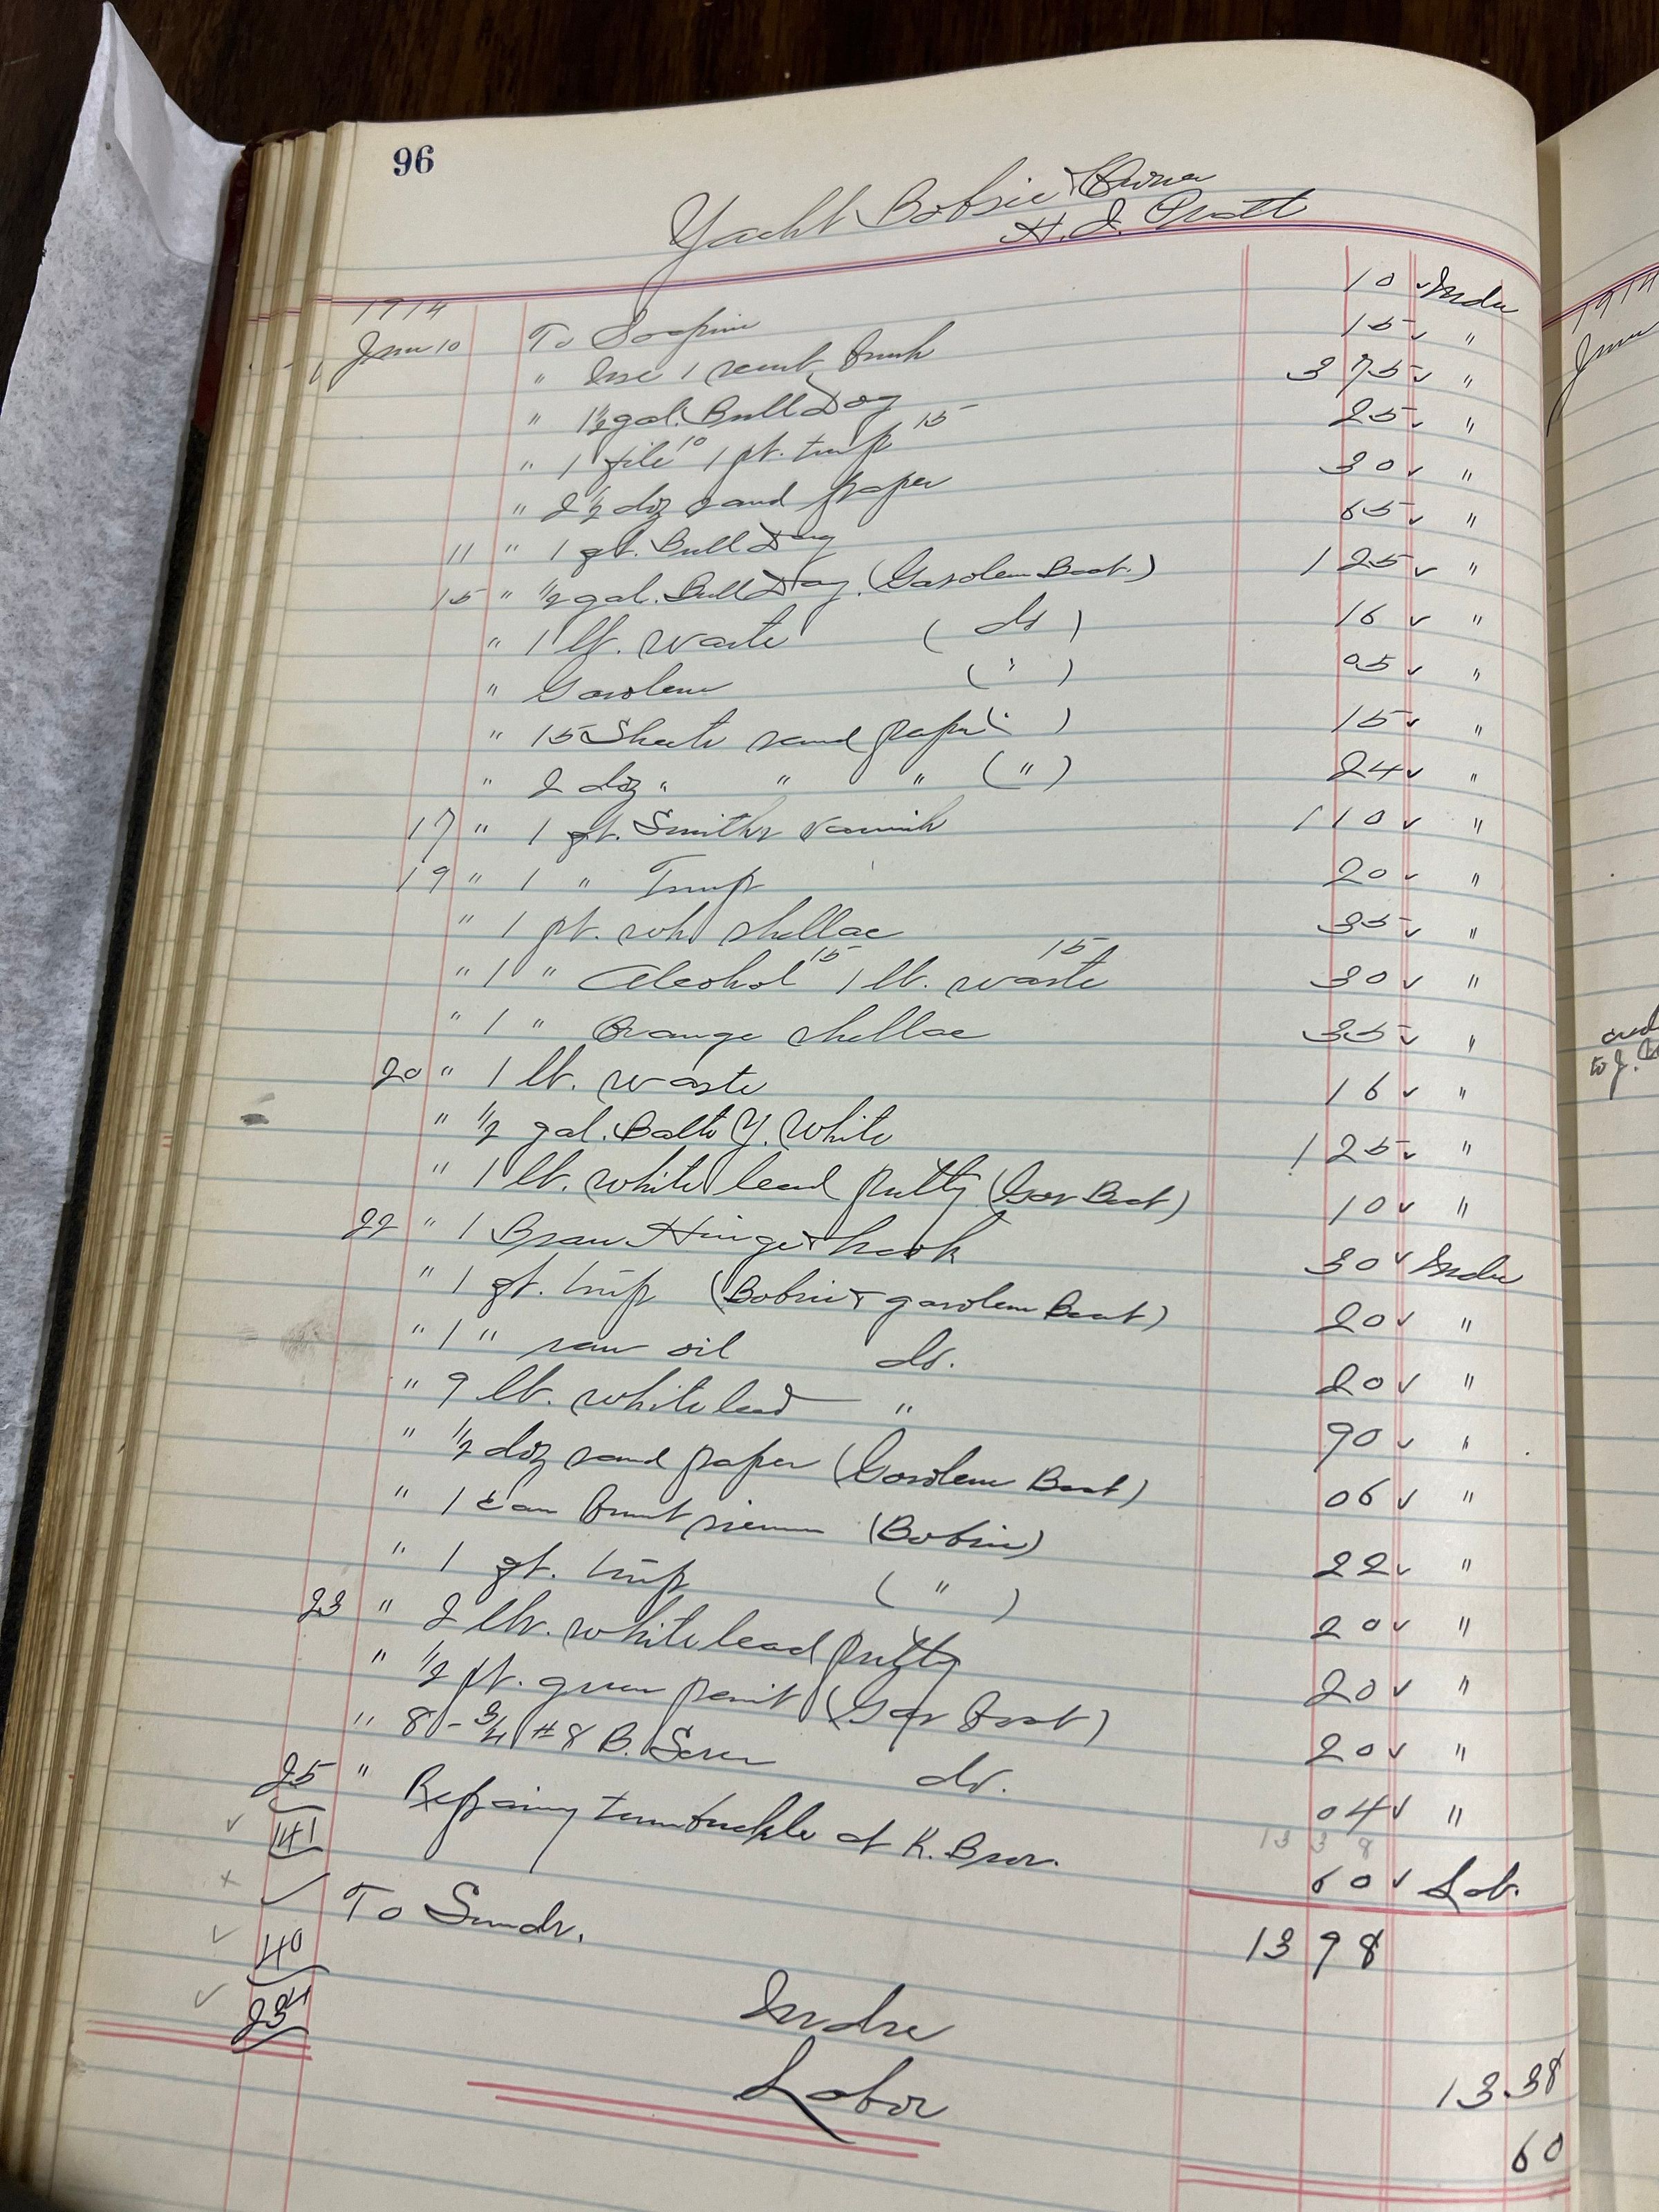 96
Yacht Bobsie & Owner
H. I. Pratt
1914
June 10 To Soapine 10 ✓ Mdse
" Use 1 paint brush 15 ✓ "
" 1½ gal. Bull Dog 3 75 ✓ "
" 1 file 10 1 pt. turp 15 25 ✓ "
" 2½ doz sand paper 30 ✓ "
11 " 1 qt. Bull Dog 65 ✓ "
15 " ½ gal. Bull Dog (Gasolene Boat) 1 25 ✓ "
" 1 lb. waste ( do ) 16 ✓ "
" Gasolene ( " ) 05 ✓ "
" 15 Sheets sand paper ( " ) 15 ✓ "
" 2 doz " " " ( " ) 24 ✓ "
17 " 1 qt. Smiths varnish 1 10 ✓ "
19 " 1 " Turp 20 ✓ "
" 1 pt. wh shellac 35 ✓ "
" 1 " Alcohol 15 1 lb. waste 15 30 ✓ "
" 1 " Orange shellac 35 ✓ "
20 " 1 lb. waste 16 ✓ "
" ½ gal. Balto Y. White 1 25 ✓ "
" 1 lb. white lead putty (Gas Boat) 10 ✓ "
22 " 1 Brass Hinge & hook 30 ✓ Mdse
" 1 qt. turp (Bobsie & gasolene Boat) 20 ✓ "
" 1 " raw oil do. 20 ✓ "
" 9 lb. white lead " 90 ✓ "
" ½ doz sand paper (Gasolene Boat) 06 ✓ "
" 1 can burnt sienna (Bobsie) 22 ✓ "
" 1 qt. turp ( " ) 20 ✓ "
23 " 2 lbs. white lead putty 20 ✓ "
" ½ pt. green paint (Gas boat) 20 ✓ "
" 8 - ¾ # 8 B. Screws do. 04 ✓ "
13 3 8
25 " Repairing turnbuckle at K. Bros. 60 ✓ Lab.
✓ 141
✓ To Sundr. 13 98
✓ 40 Mdse 13.38
✓ 234 Labor 60